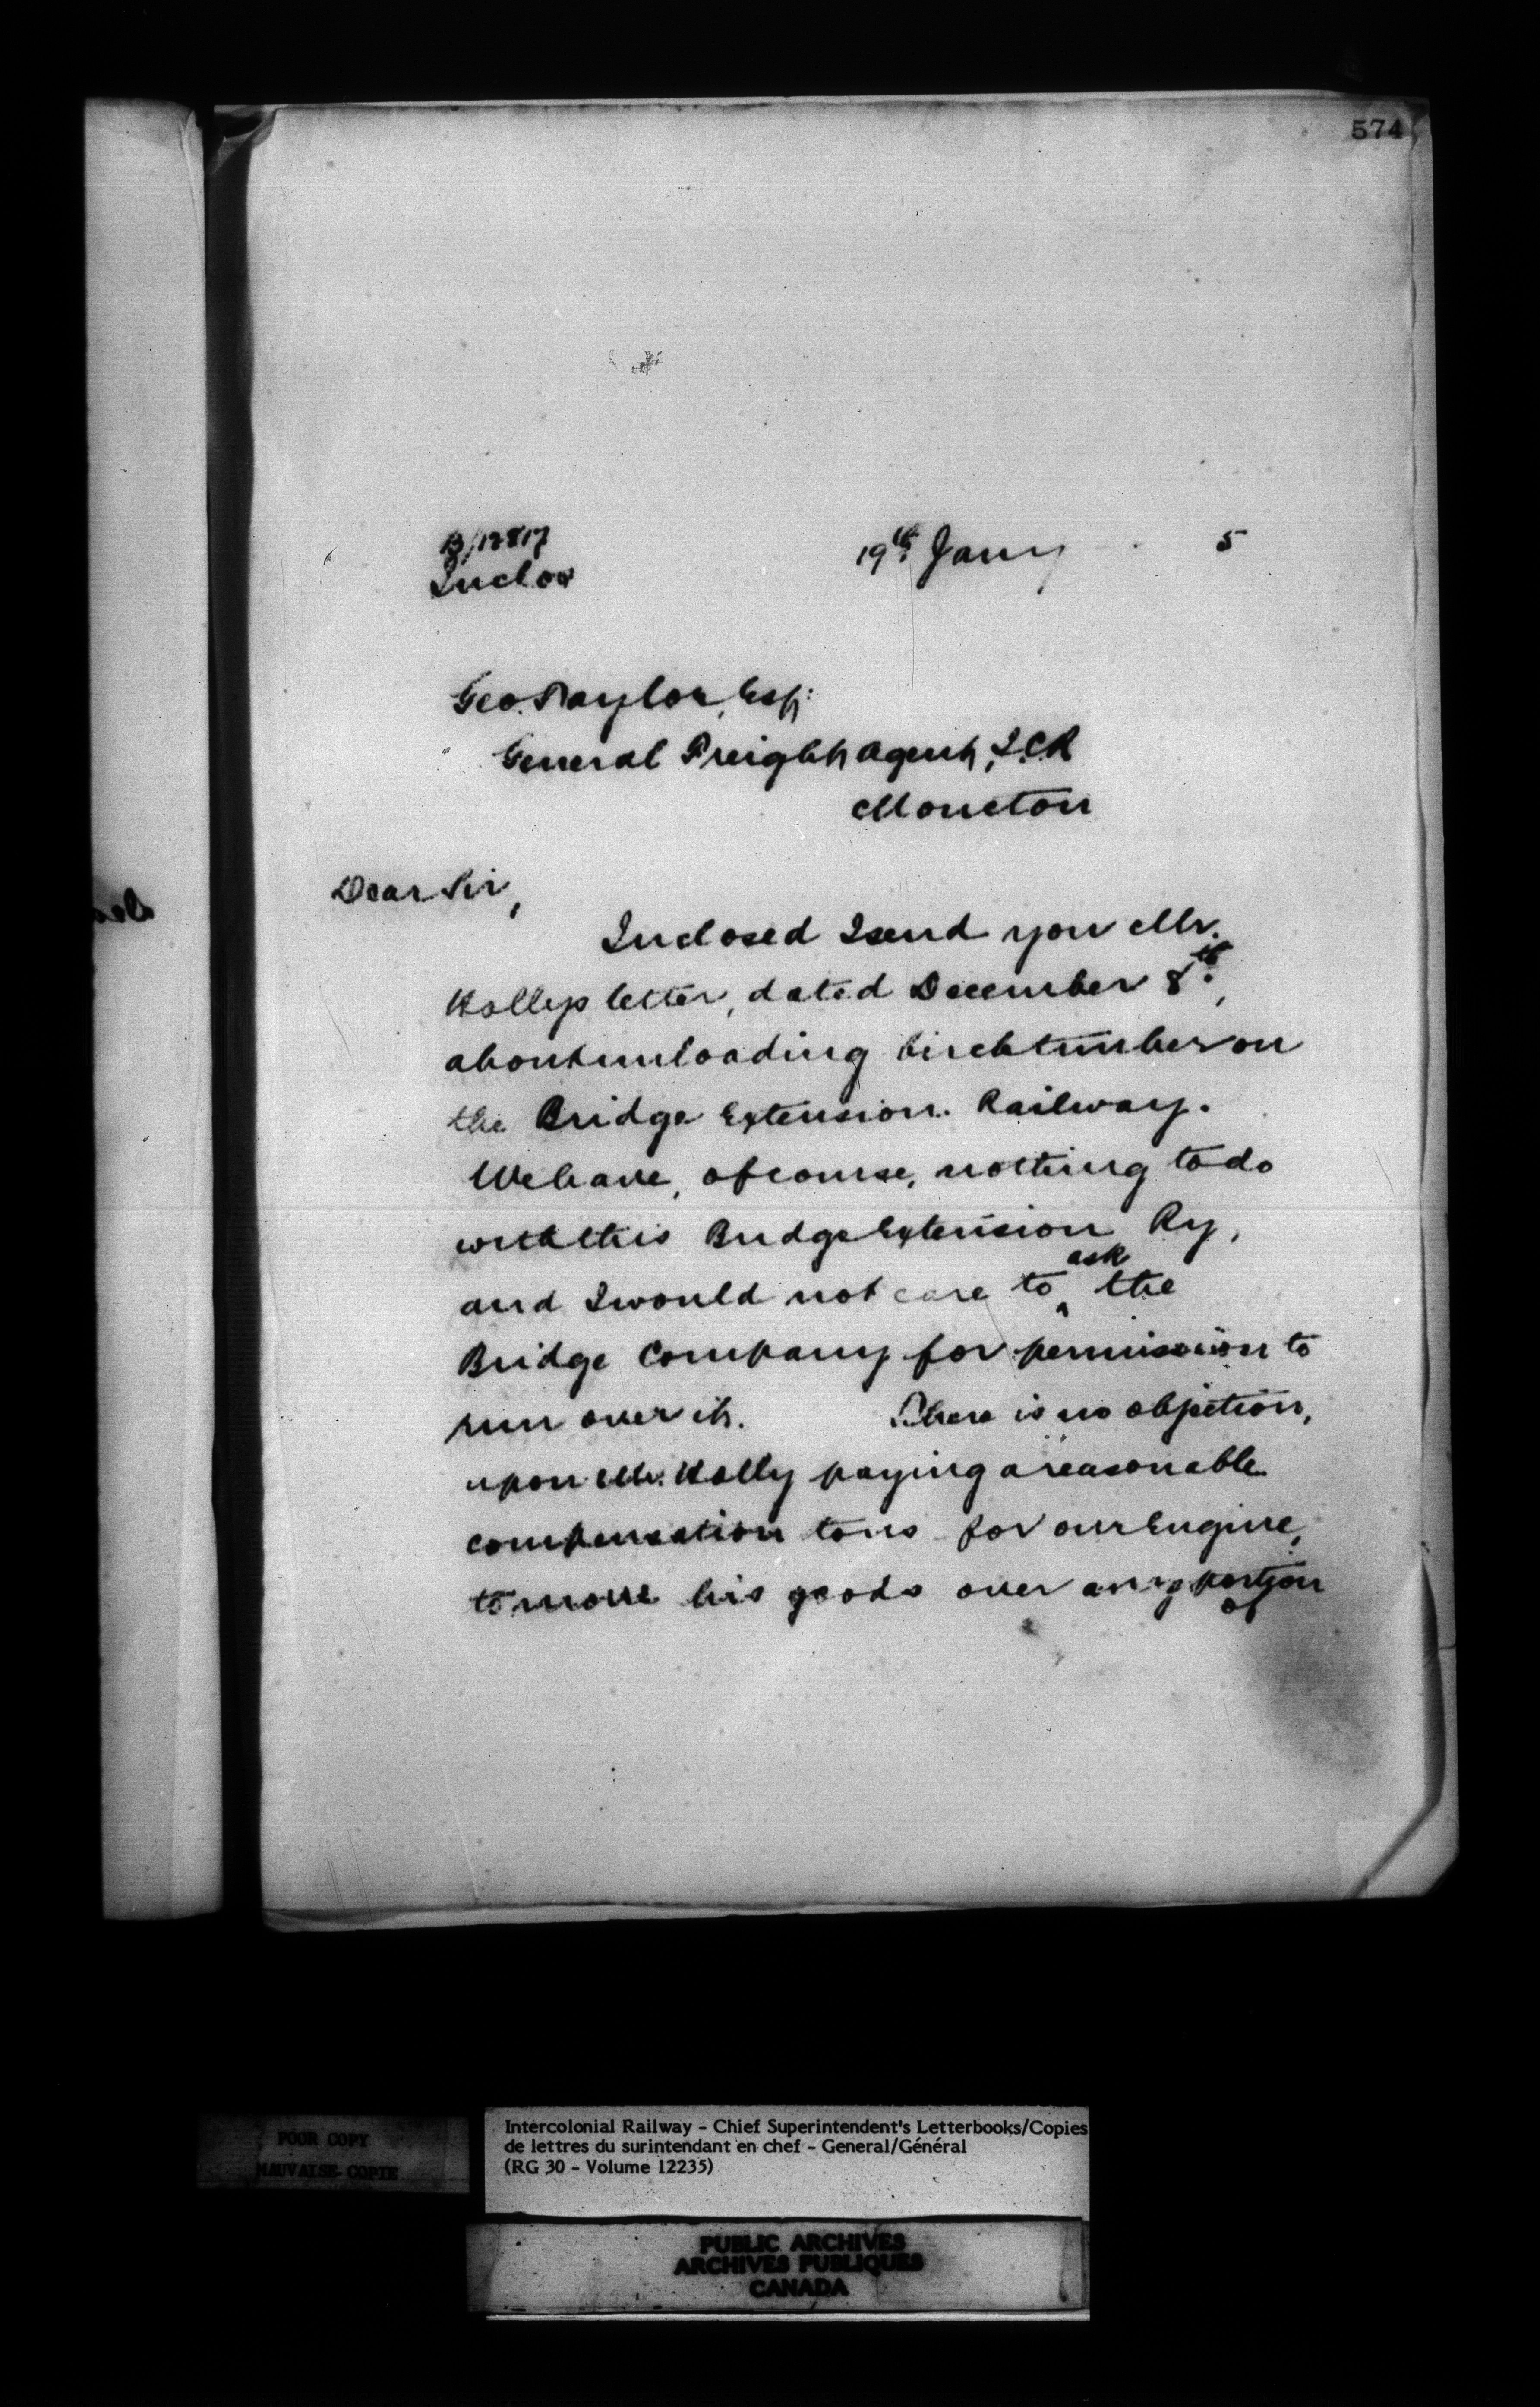 574
B/12817
Inclos
19th. Jany 5
Geo. Taylor, Esq:
General Freight Agent, I.C.R
Moncton
Dear Sir,
Inclosed I send you Mr.
Holly's letter, dated December 8th.,
about unloading birch timber on
the Bridge Extension Railway.
We have, of course, nothing to do
with this Bridge Extension Ry,
and I would not care to ask the
Bridge Company for permission to
run over it. There is no objection,
upon Mr. Holly paying a reasonable
compensation to us for our Engine,
to move his goods over any portion
of
POOR COPY
MAUVAISE COPIE
Intercolonial Railway - Chief Superintendent's Letterbooks/Copies
de lettres du surintendant en chef - General/Général
(RG 30 - Volume 12235)
PUBLIC ARCHIVES
ARCHIVES PUBLIQUES
CANADA